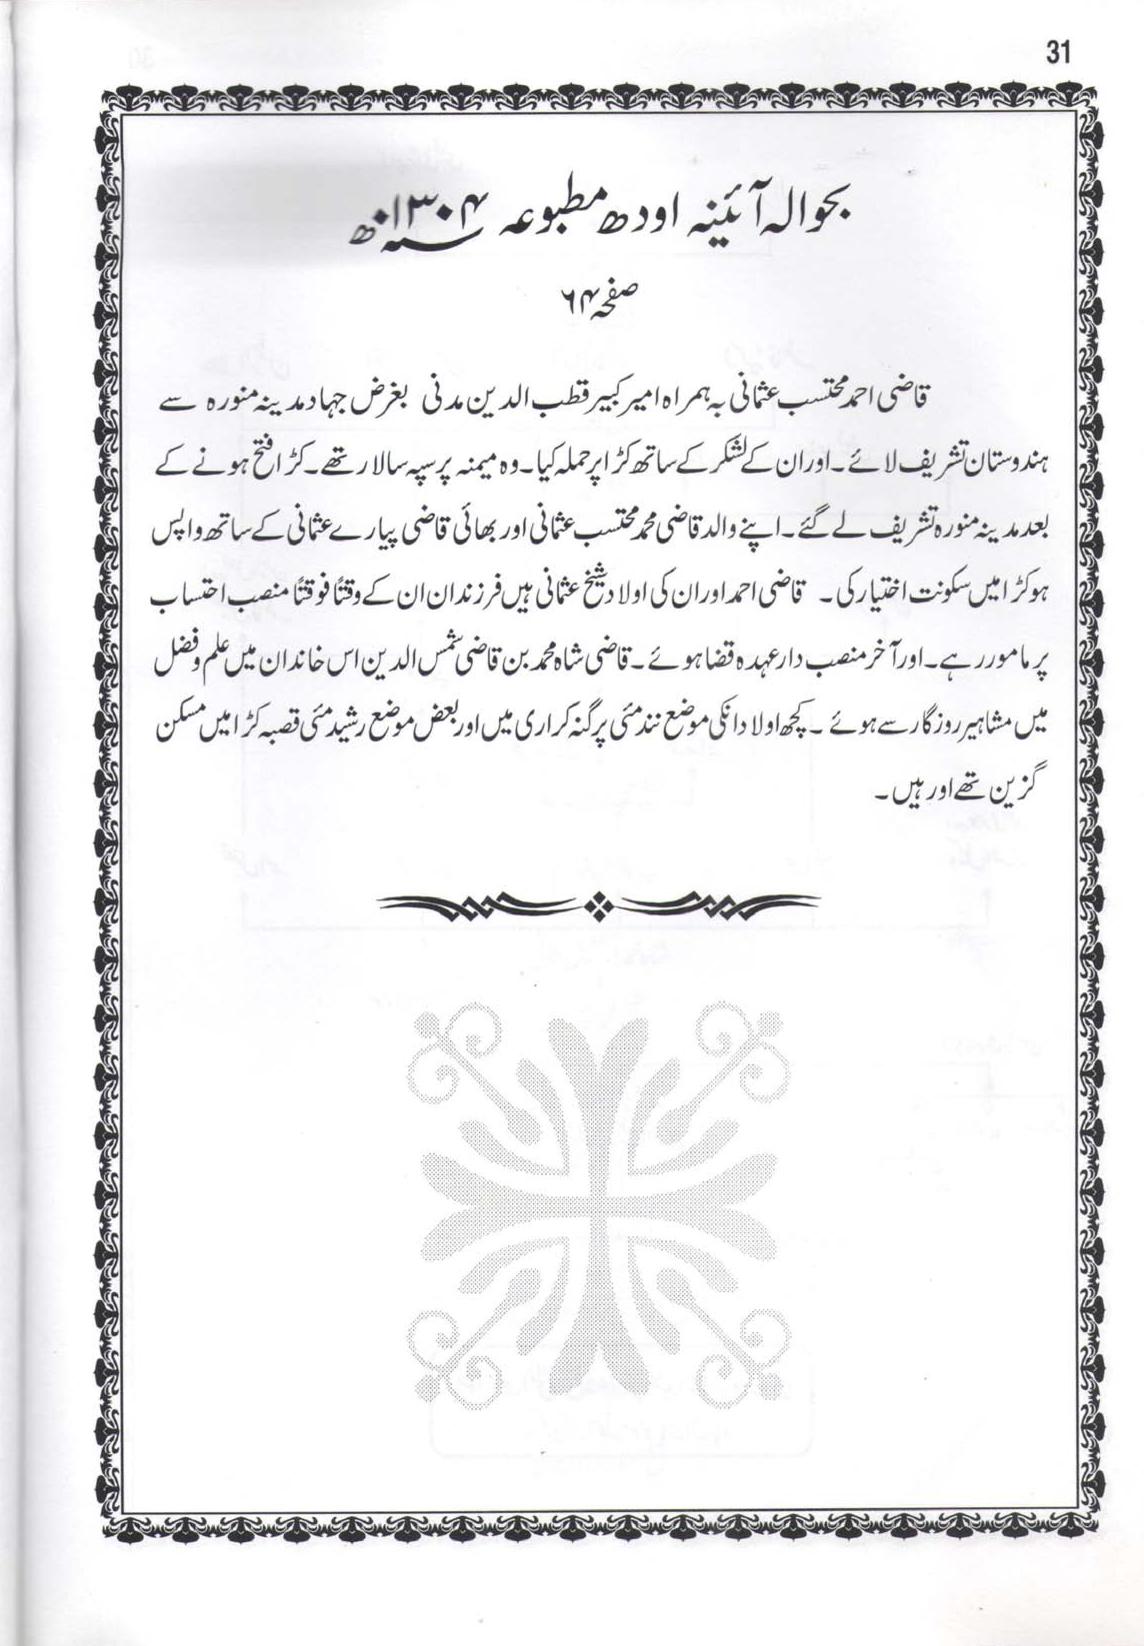 31
بحوالہ آئینہ اودھ مطبوعہ ۱۳۰۴ھ
صفحہ ۶۴
قاضی احمد محتسب عثمانی بہ ہمراہ امیر کبیر قطب الدین مدنی بغرض جہاد مدینہ منورہ سے
ہندوستان تشریف لائے۔ اور ان کے لشکر کے ساتھ کڑا پر حملہ کیا۔ وہ میمنہ پر سپہ سالار تھے۔ کڑا فتح ہونے کے
بعد مدینہ منورہ تشریف لے گئے۔ اپنے والد قاضی محمد محتسب عثمانی اور بھائی قاضی پیارے عثمانی کے ساتھ واپس
ہوکڑا میں سکونت اختیار کی۔ قاضی احمد اور ان کی اولاد شیخ عثمانی ہیں فرزندان ان کے وقتاً فوقتاً منصب احتساب
پر مامور رہے۔ اور آخر منصب دار عہدہ قضا ہوئے۔ قاضی شاہ محمد بن قاضی شمس الدین اس خاندان میں علم و فضل
میں مشاہیر روزگار سے ہوئے۔ کچھ اولاد انکی موضع نندمئی پرگنہ کراری میں اور بعض موضع رشیدمئی قصبہ کڑا میں مسکن
گزین تھے اور ہیں۔